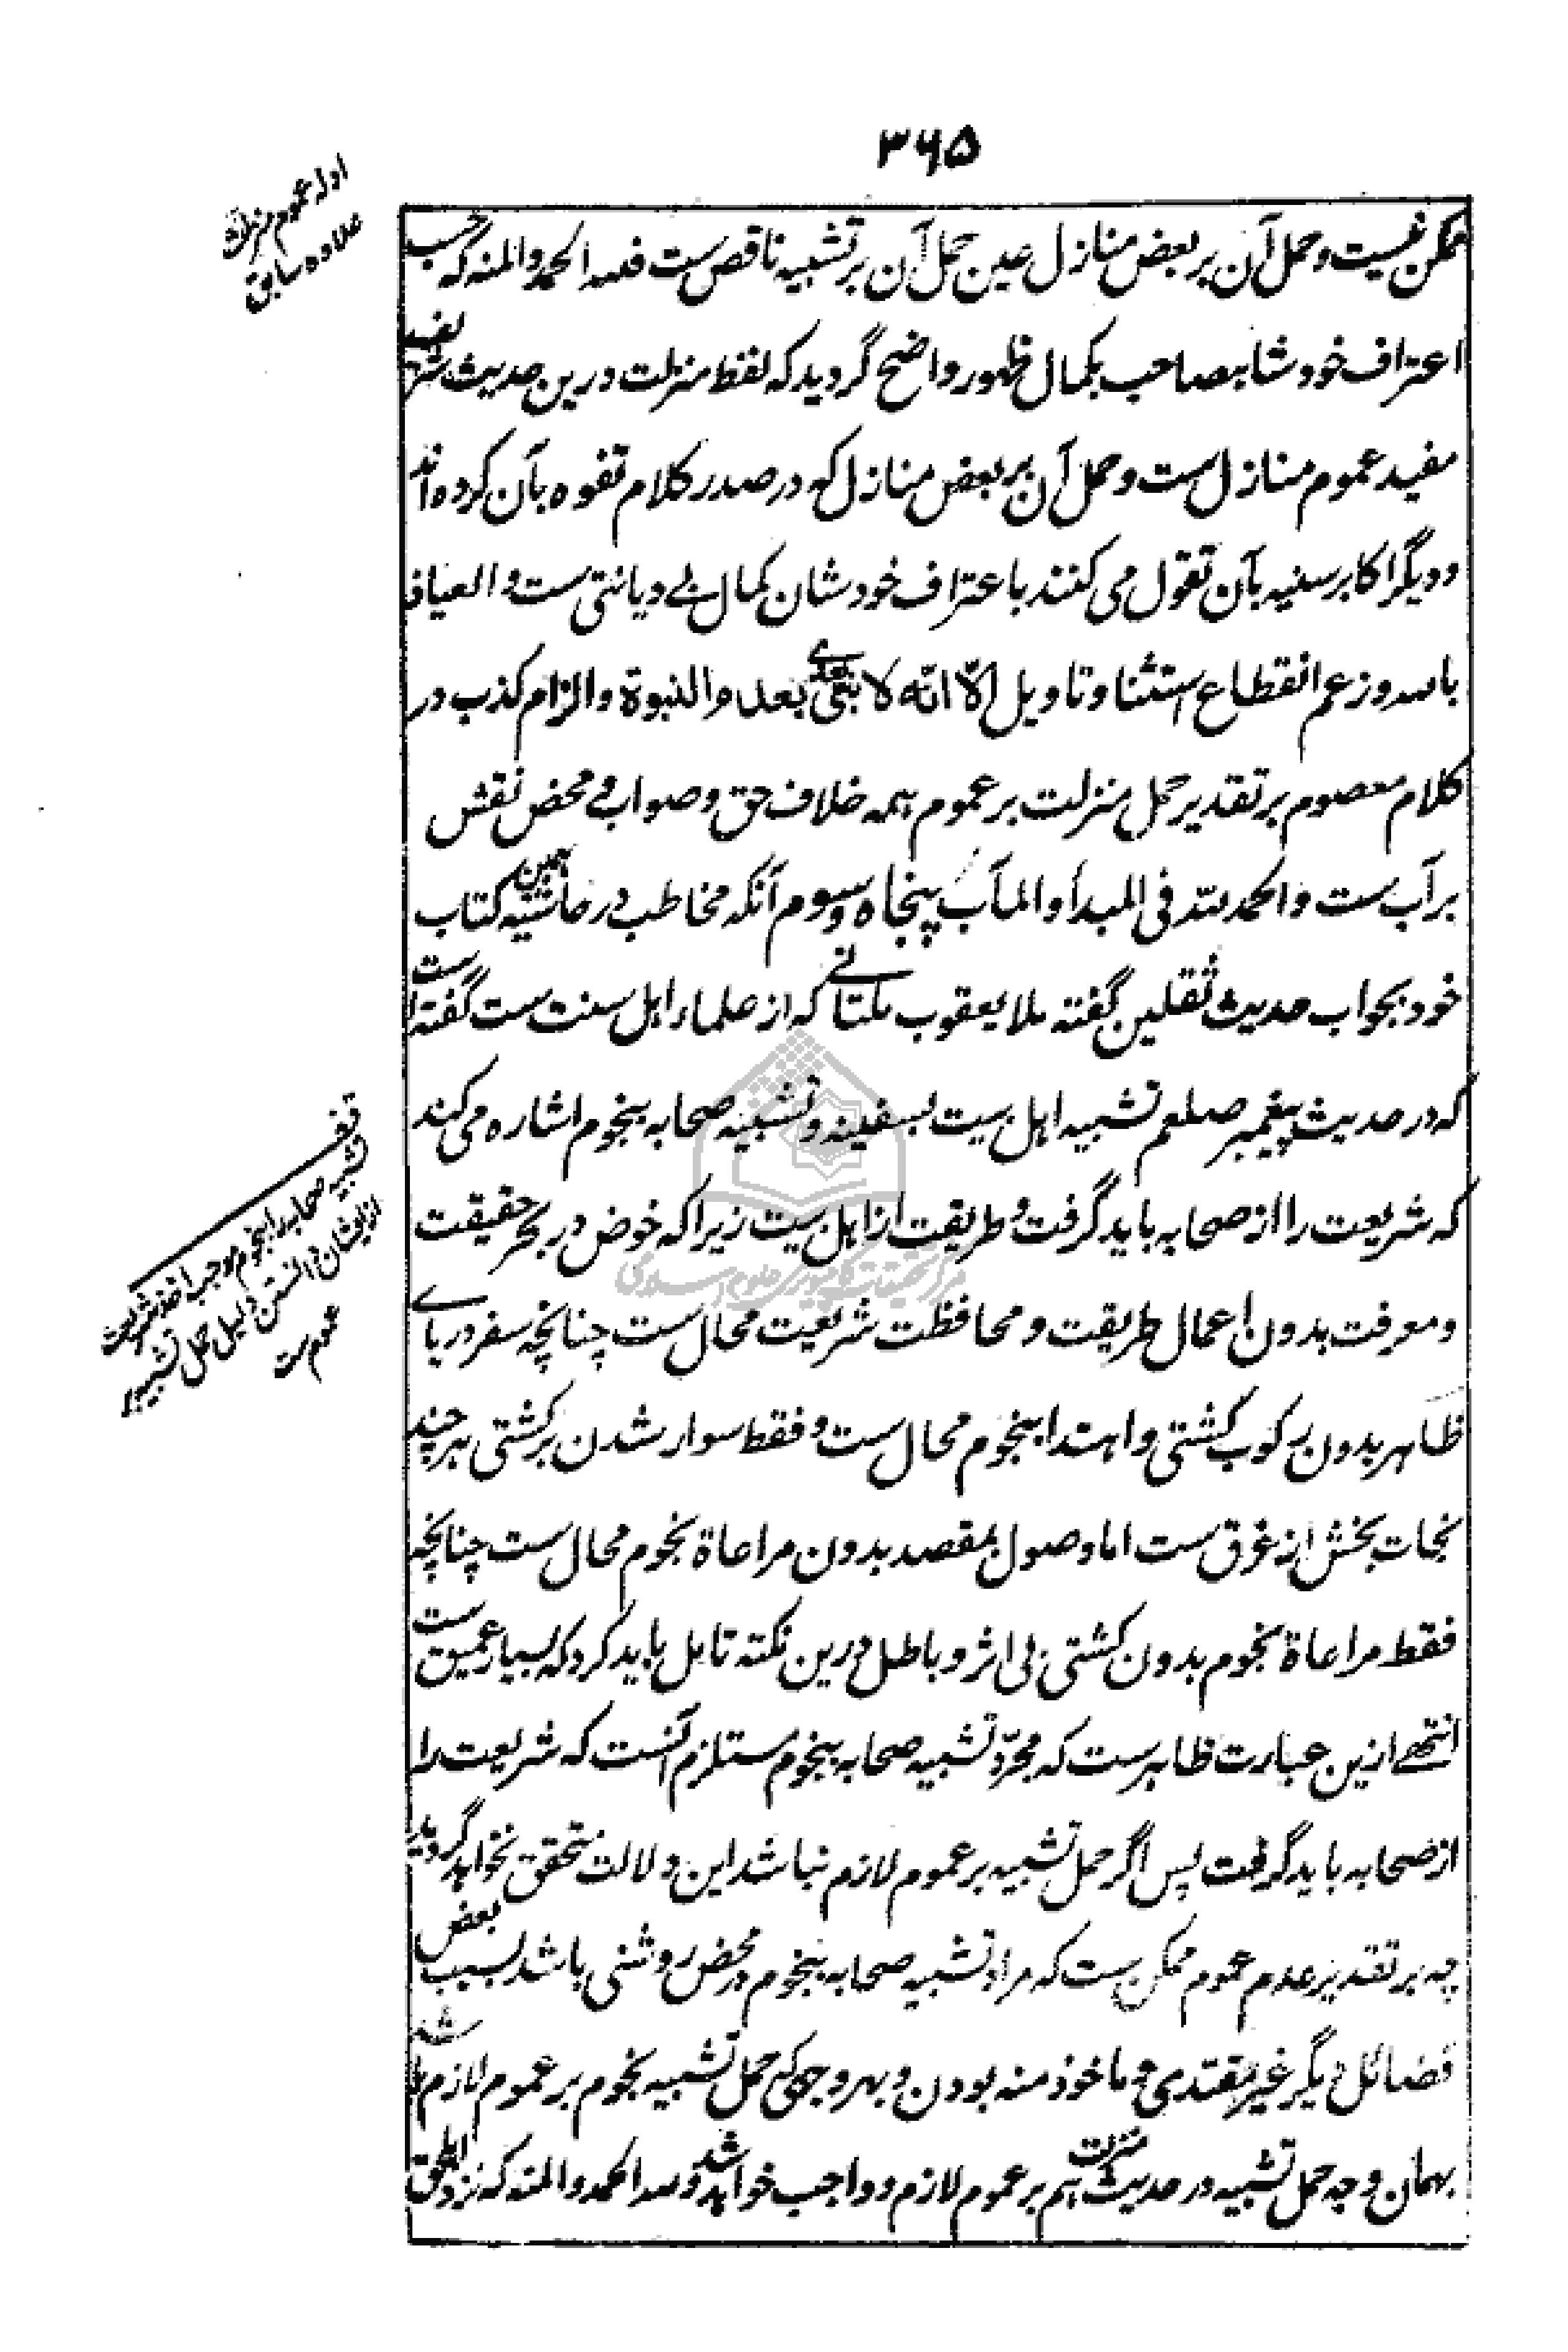 ۳۶۵
ادله عموم منزلت
علاوه سابق
ممکن نیست و حمل آن بر بعض منازل عین حمل آن بر تشبیه ناقص ست فلله الحمد والمنه که حسب
اعتراف خود شاهصاحب بکمال ظهور واضح گردید که لفظ منزلت درین حدیث شریف
مفید عموم منازل ست و حمل آن بر بعض منازل که در صدر کلام تفوه بآن کرده اند
و دیگر اکابر سنیه بآن تقول می کنند باعتراف خودشان کمال بے دیانتی ست و العیاذ
بالله و زعم انقطاع استثنا و تاویل الّا انّه لا نبی بعدی بعدم النبوة و الزام کذب در
کلام معصوم بر تقدیر حمل منزلت بر عموم همه خلاف حق و صواب و محض نقش
بر آب ست و الحمد لله فی المبدأ و المآب پنجاه و سوم آنکه مخاطب در حاشیه همین کتاب
خود بجواب حدیث ثقلین گفته ملا یعقوب ملتانے که از علماء اهل سنت ست گفته است
که در حدیث پیغمبر صلعم تشبیه اهل بیت بسفینه و تشبیه صحابه بنجوم اشاره می کند
که شریعت را از صحابه باید گرفت و طریقت از اهل بیت زیرا که خوض در بحر حقیقت
و معرفت بدون اعمال طریقت و محافظت شریعت محال ست چنانچه سفر دریاے
ظاهر بدون رکوب کشتی و اهتدا بنجوم محال ست و فقط سوار شدن بر کشتی هر چند
نجات بخش از غرق ست اما وصول بمقصد بدون مراعاة نجوم محال ست چنانچه
فقط مراعاة نجوم بدون کشتی بی اثر و باطل درین نکته تامل باید کرد که بسیار عمیق ست
انتهے ازین عبارت ظاهرست که مجرّد تشبیه صحابه بنجوم مستلزم آنست که شریعت را
از صحابه باید گرفت پس اگر حمل تشبیه بر عموم لازم نباشد این دلالت متحقق نخواهد گردید
چه بر تقدیر عدم عموم ممکن ست که مراد تشبیه صحابه بنجوم در محض روشنی باشد بسبب بعض
فضائل دیگر غیر مقتدی و ماخوذ منه بودن و بهر وجهی که حمل تشبیه بنجوم بر عموم لازم باشد
بهمان وجه حمل تشبیه در حدیث منزلت هم بر عموم لازم و واجب خواهد شد ولله الحمد والمنه که نزد اهل حق
تشبیه صحابه را بنجوم موجب اخذ شریعت
ازیشان دانستن دلیل حمل تشبیه بر
عموم ست